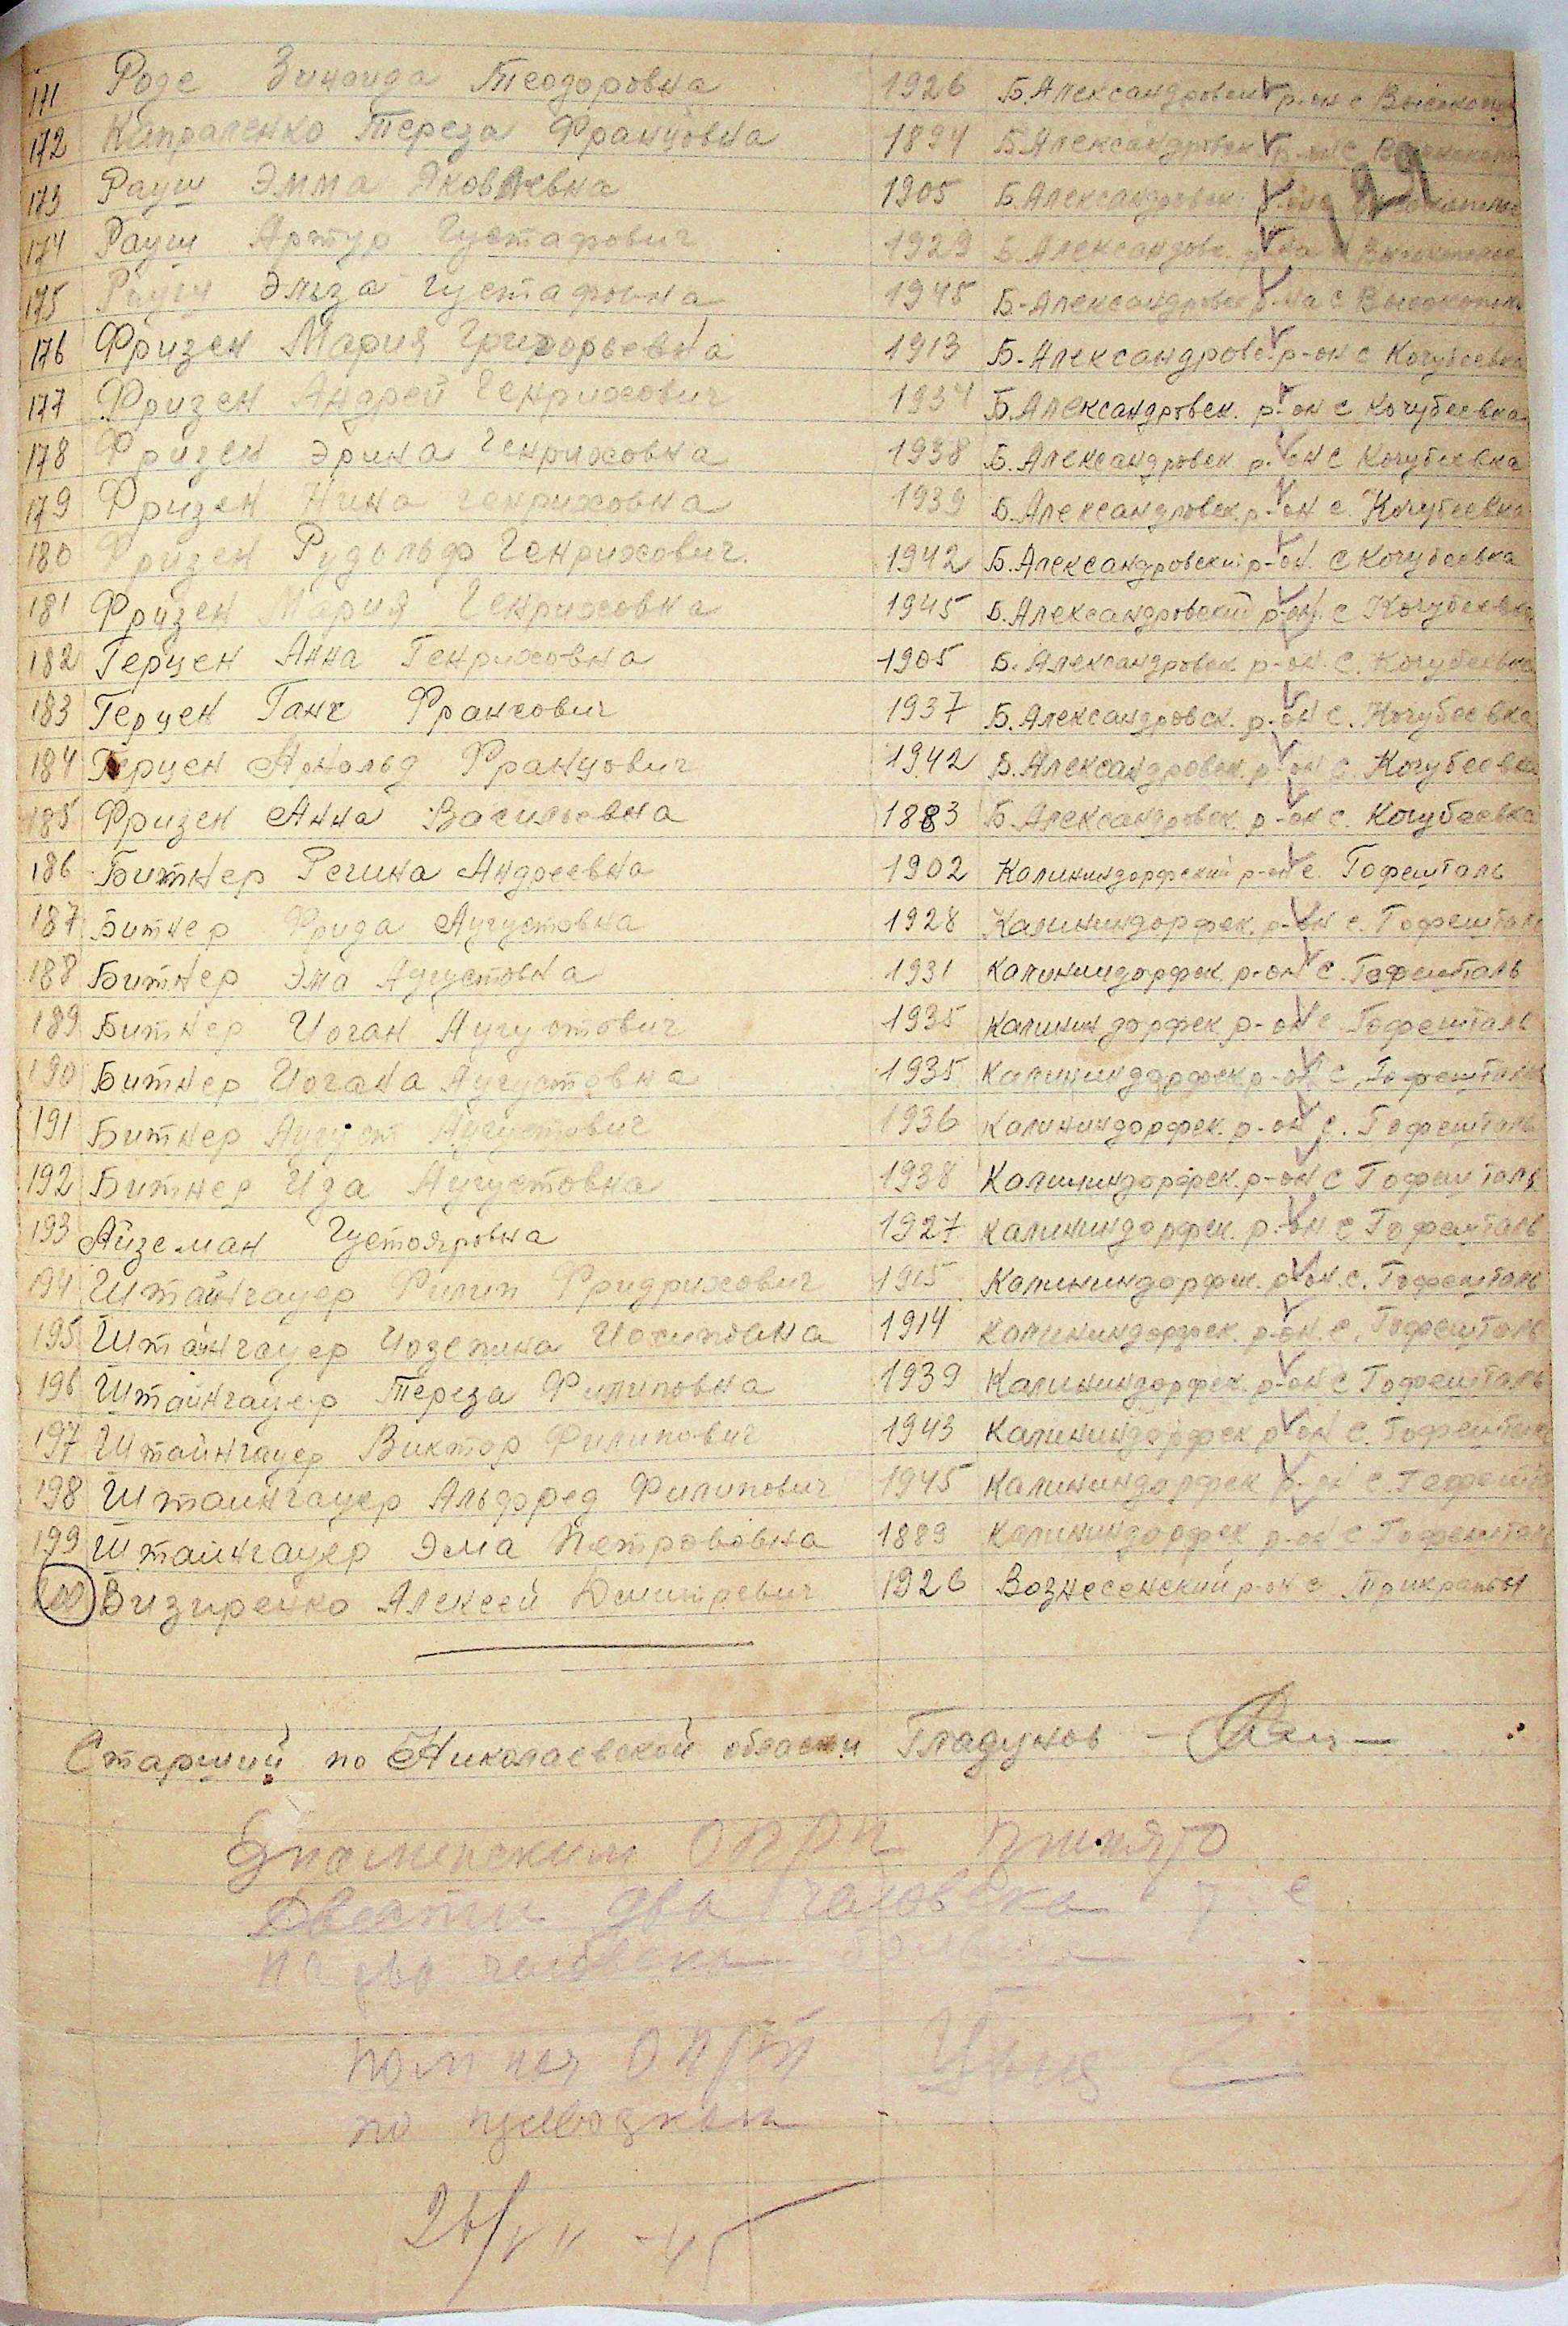 171 Роде Зинаида Теодоровна 1926 Б.Александровск р-он с Высокополь
172 Тереза Францовна 1894 Б.Александровск. р-он с Высокополь
173 Рауш Эмма Яковлевна 1905 Б.Александровск. р-он с Высокополье
99
174 Рауш Артур Густафович 1929 Б.Александровс. р-на с Высокополье
175 Рауш Эльза Густафовна 1945 Б-Александровск р-на с Высокополь
176 Фризен Мария Григорьевна 1913 Б-Александровс. р-он с Кочубеевка
177 Фризен Андрей Генрихович 1934 Б.Александровск. р-он с Кочубеевка
178 Фризен Эрина Генриховна 1938 Б.Александровск р-он с Кочубеевка
179 Фризен Нина Генриховна 1939 Б.Александровск. р-он с. Кочубеевка
180 Фризен Рудольф Генрихович. 1942 Б.Александровский р-он. с Кочубеевка
181 Фризен Мария Генриховна 1945 Б.Александровский р-он. с Кочубеевка
182 Герцен Анна Генриховна 1905 Б.Александровск. р-он. с. Кочубеевка
183 Герцен Ганс Франсович 1937 Б.Александровск. р-он с. Кочубеевка
184 Герцен Арнольд Францович 1942 Б.Александровск. р-он с. Кочубеевка
185 Фризен Анна Васильевна 1883 Б.Александровск. р-он с. Кочубеевка
186 Битнер Регина Андреевна 1902 Калининдорфский р-он с. Гофешталь
187 Битнер Фрида Аугустовна 1928 Калининдорфск. р-он с. Гофешталь
188 Битнер Эма Аугустовна 1931 Калининдорфск р-он с. Гофешталь
189 Битнер Иоган Аугустович 1935 Калининдорфск р-он с Гофешталь
190 Битнер Иогана Аугустовна 1935 Калининдорфск р-он с. Гофешталь
191 Битнер Аугуст Аугустович 1936 Калининдорфск. р-он с. Гофешталь
192 Битнер Ида Аугустовна 1938 Калининдорфск. р-он с Гофешталь
193 Айземан 1927 Калининдорфск. р-он с Гофешталь
194 Штайнгауер Филип Фридрихович 1915 Калининдорфск. р-он. с. Гофешталь
195 Штайнгауер Иозепина Иосиповна 1914 Калининдорфск. р-он. с. Гофешталь
196 Штайнгауер Тереза Филиповна 1939 Калининдорфск. р-он с Гофешталь
197 Штайнгауер Виктор Филипович 1943 Калининдорфск р-он с. Гофешталь
198 Штаингауер Альфред Филипович 1945 Калининдорфск р-он с. Гофешта
199 Штаингауер Эма Петрововна 1889 Калининдорфск р-он с Гофешталь
200 Визиренко Алексей Дмитревич 1926 Вознесенский р-он с Трикраты
Старший по Николаевской области Гладунов
Знаменским ОПРП принято
двести два человека т. е
на два человека больше
пом нач ОПРП
по
26/VII -45